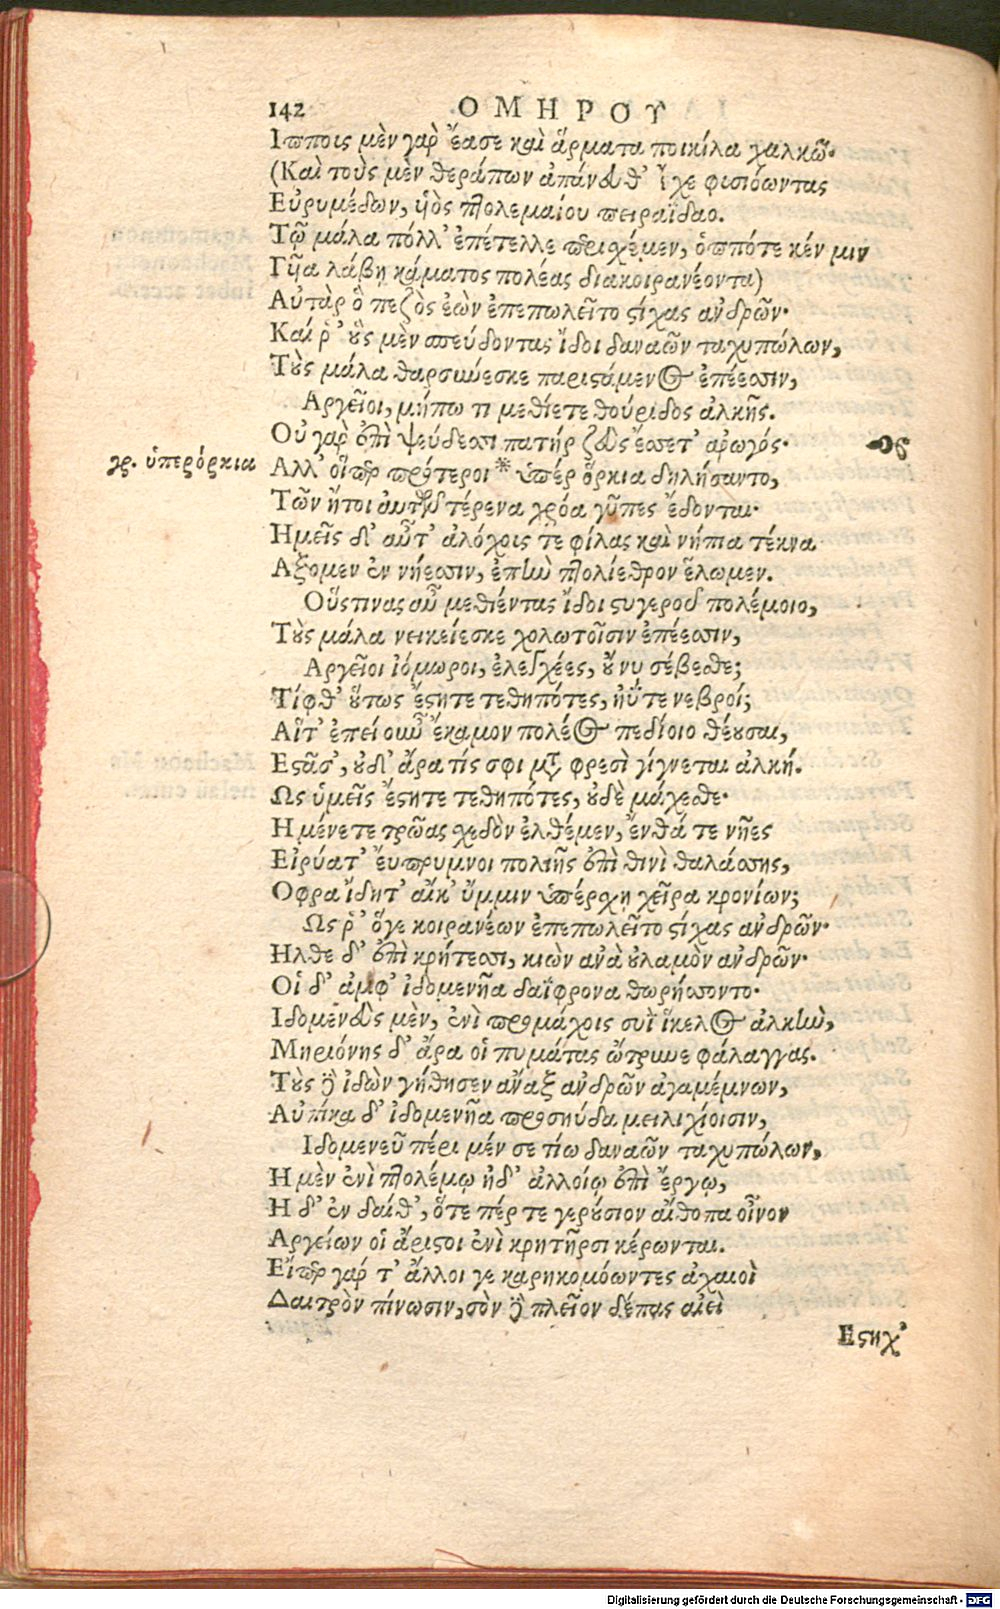 142 ΟΜΗΡΟΥ
Ιπποις μὲν γαρ ἔασε καὶ ἅρματα ποικίλα χαλκῷ·
(Καὶ τοὺς μὲν θεράπων ἀπάνευθ' ἶχε φυσιόωντας
Εὐρυμέδων, υἱὸς πτολεμαίου πειραΐδαο.
Τῷ μάλα πόλλ' ἐπέτελλε παρισχέμεν, ὁππότε κέν μιν
Γυῖα λάβῃ κάματος πολέας διακοιρανέοντα)
Αὐτὰρ ὃ πεζὸς ἐὼν ἐπεπωλεῖτο στίχας ανδρῶν·
Καί ῥ' οὓς μὲν σπεύδοντας ἴδοι δαναῶν ταχυπώλων,
Τοὺς μάλα θαρσύνεσκε παριστάμενος ἐπέεσσιν,
Αργεῖοι, μήπω τι μεθίετε θούριδος ἀλκῆς.
Οὐ γαρ ἐπὶ ψεύδεσσι πατήρ ζεὺς ἔσσετ' ἀρωγός·
90
γρ. ὑπερόρκια
Αλλ' οἵπερ πρότεροι * ὑπέρ ὅρκια δηλήσαντο,
Τῶν ἤτοι αυτῶν τέρενα χρόα γῦπες ἔδονται·
Ημεῖς δ' αὖτ' ἀλόχοις τε φίλας καὶ νήπια τέκνα
Αξομεν ἐν νήεσσιν, ἐπὴν πτολίεθρον ἕλωμεν.
Οὕςτινας αὖ μεθιέντας ἴδοι στυγεροῦ πολέμοιο,
Τοὺς μάλα νεικείεσκε χολωτοῖσιν ἐπέεσσιν,
Αργεῖοι ἰόμωροι, ἐλεγχέες, οὔ νυ σέβεσθε;
Τίφθ' οὕτως ἔστητε τεθηπότες, ηΰτε νεβροί;
Αἵτ' ἐπεί οὖν ἔκαμον πολέος πεδίοιο θέουσαι,
Εστᾶσ', οὐδ' ἄρα τίς σφι μετὰ φρεσὶ γίγνεται ἀλκή.
Ως ὑμεῖς ἔστητε τεθηπότες, οὐδὲ μάχεσθε·
Η μένετε τρῶας σχεδὸν ἐλθέμεν, ἔνθά τε νῆες
Εἰρύατ' ἔυπρυμνοι πολιῆς ἐπὶ θινὶ θαλάσσης,
Οφρα ἴδητ' αἴκ' ὔμμιν ὑπέρσχῃ χεῖρα κρονίων;
Ως ῥ' ὅγε κοιρανέων ἐπεπωλεῖτο στίχας ανδρῶν·
Ηλθε δ' ἐπὶ κρήτεσσι, κιὼν ανὰ οὐλαμὸν ανδρῶν·
Οἱ δ' ἀμφ' ἰδομενῆα δαΐφρονα θωρήσσοντο·
Ιδομενεὺς μὲν, ἐνὶ προμάχοις συῒ ἴκελος ἀλκὴν,
Μηριόνης δ' ἄρα οἱ πυμάτας ὤτρυνε φάλαγγας.
Τοὺς δὲ ἰδὼν γήθησεν αναξ ανδρῶν ἀγαμέμνων,
Αὐτίκα δ' ἰδομενῆα προσηύδα μειλιχίοισιν,
Ιδομενεῦ πέρι μέν σε τίω δαναῶν ταχυπώλων,
Η μὲν ἐνὶ πτολέμῳ ἠδ' ἀλλοίῳ ἐπὶ ἔργῳ,
Η δ' ἐν δαίθ', ὅτε πέρ τε γερούσιον αἴθοπα οἶνον
Αργείων οἱ ἄριστοι ἐνὶ κρητῆρσι κέρωνται.
Εἴπερ γαρ τ' ἄλλοι γε καρηκομόωντες ἀχαιοὶ
Δαιτρὸν πίνωσιν, σὸν δὲ πλεῖον δέπας αἰεὶ
Εστηχ'
Digitalisierung gefördert durch die Deutsche Forschungsgemeinschaft - DFG